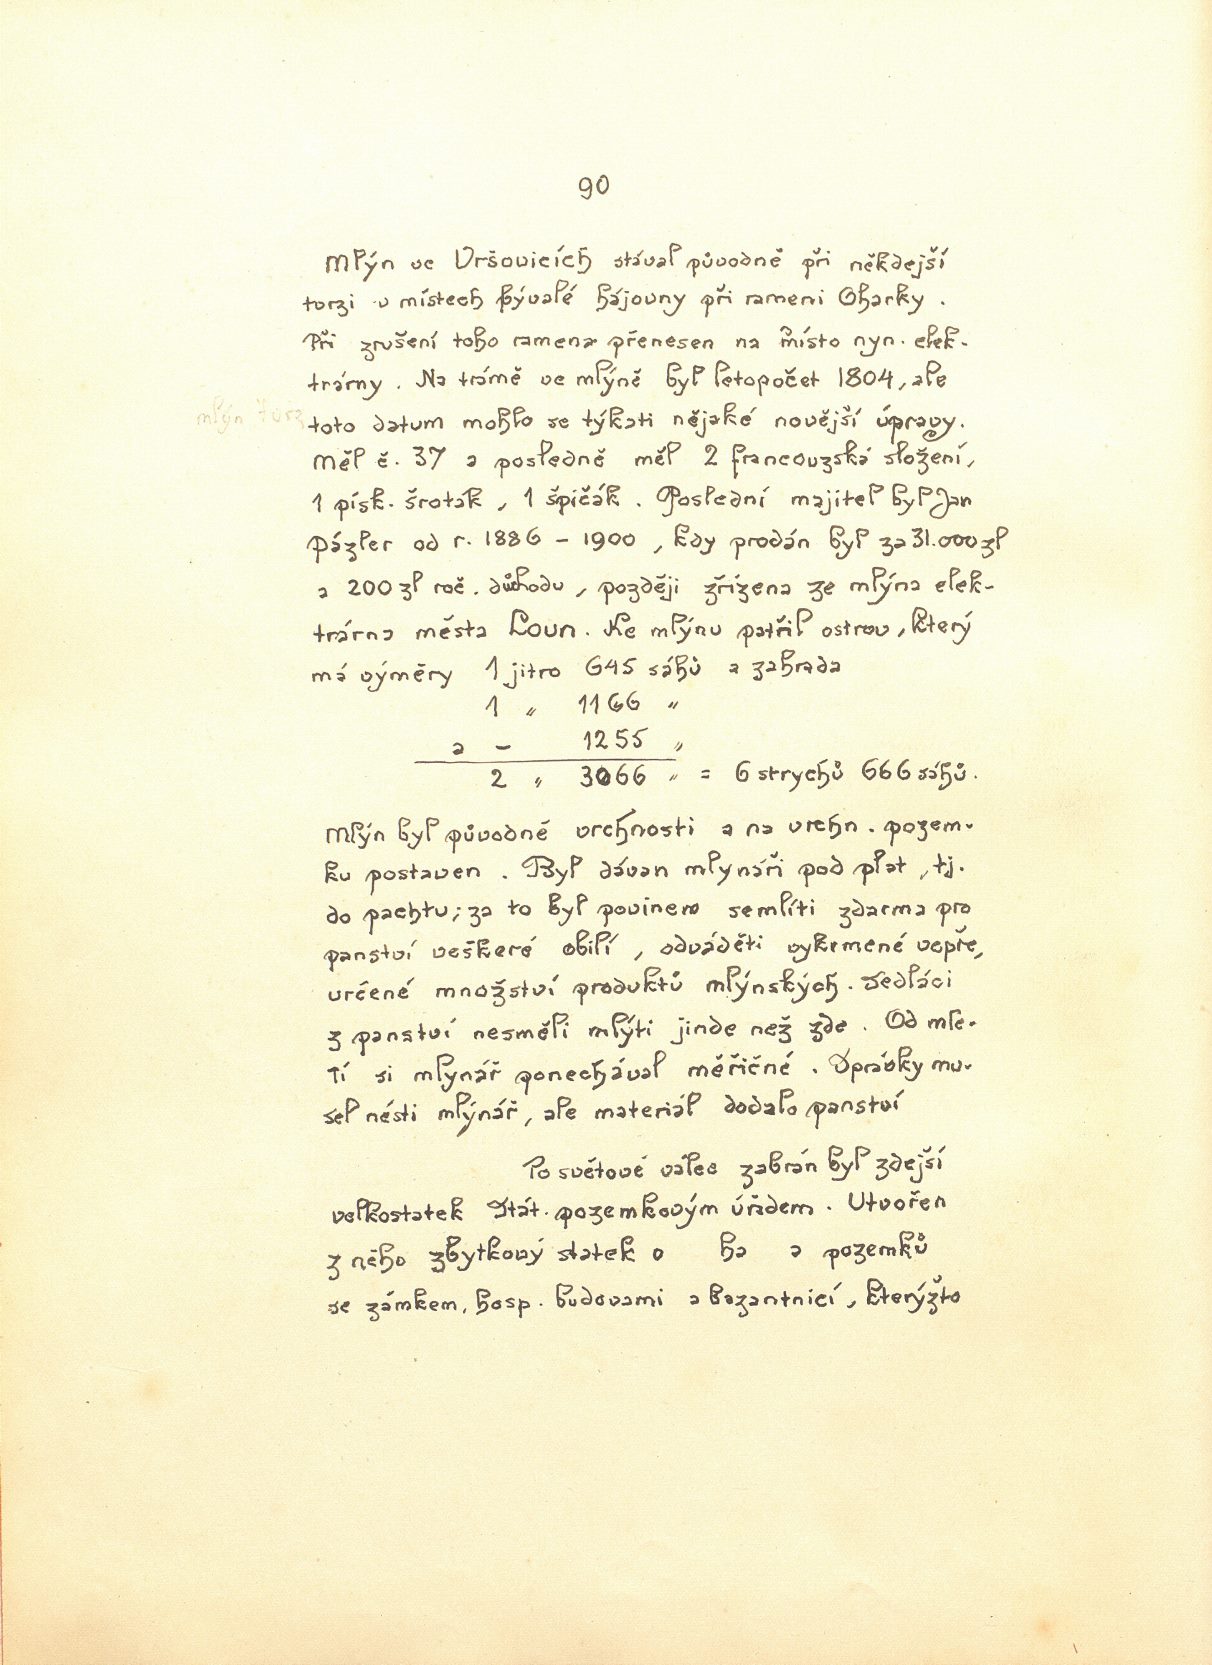 90
Mlýn ve Vršovicích stával původně při někdejší
tvrzi v místech bývalé hájovny při rameni Oharky.
Při zrušení toho ramena přenesen na místo nyn. elek-
trárny. Na trámě ve mlýně byl letopočet 1804, ale
mlýn Tvrz
toto datum mohlo se týkati nějaké novější úpravy.
Měl č. 37 a posledně měl 2 francouzská složení,
1 písk. šroták, 1 špičák. Poslední majitel byl Jan
Pázler od r. 1886 – 1900, kdy prodán byl za 31.000 zl
a 200 zl roč. důchodu, později zřízena ze mlýna elek-
trárna města Loun. Ke mlýnu patřil ostrov, který
má výměry 1 jitro 645 sáhů a zahrada
1 „ 1166 „
a – 1255 „
2 „ 3066 „ = 6 strychů 666 sáhů.
Mlýn byl původně vrchnosti a na vrchn. pozem-
ku postaven. Byl dáván mlynáři pod plat, tj.
do pachtu; za to byl povinen semlíti zdarma pro
panství veškeré obilí, odváděti vykrmené vepře,
určené množství produktů mlýnských. Sedláci
z panství nesměli mlýti jinde než zde. Od mle-
tí si mlynář ponechával měřičné. Oprávky mu-
sel nésti mlýnář, ale materiál dodalo panství
Po světové válce zabrán byl zdejší
velkostatek Stát. pozemkovým úřadem. Utvořen
z něho zbytkový statek o ha a pozemků
se zámkem, hosp. budovami a bažantnicí, kterýžto